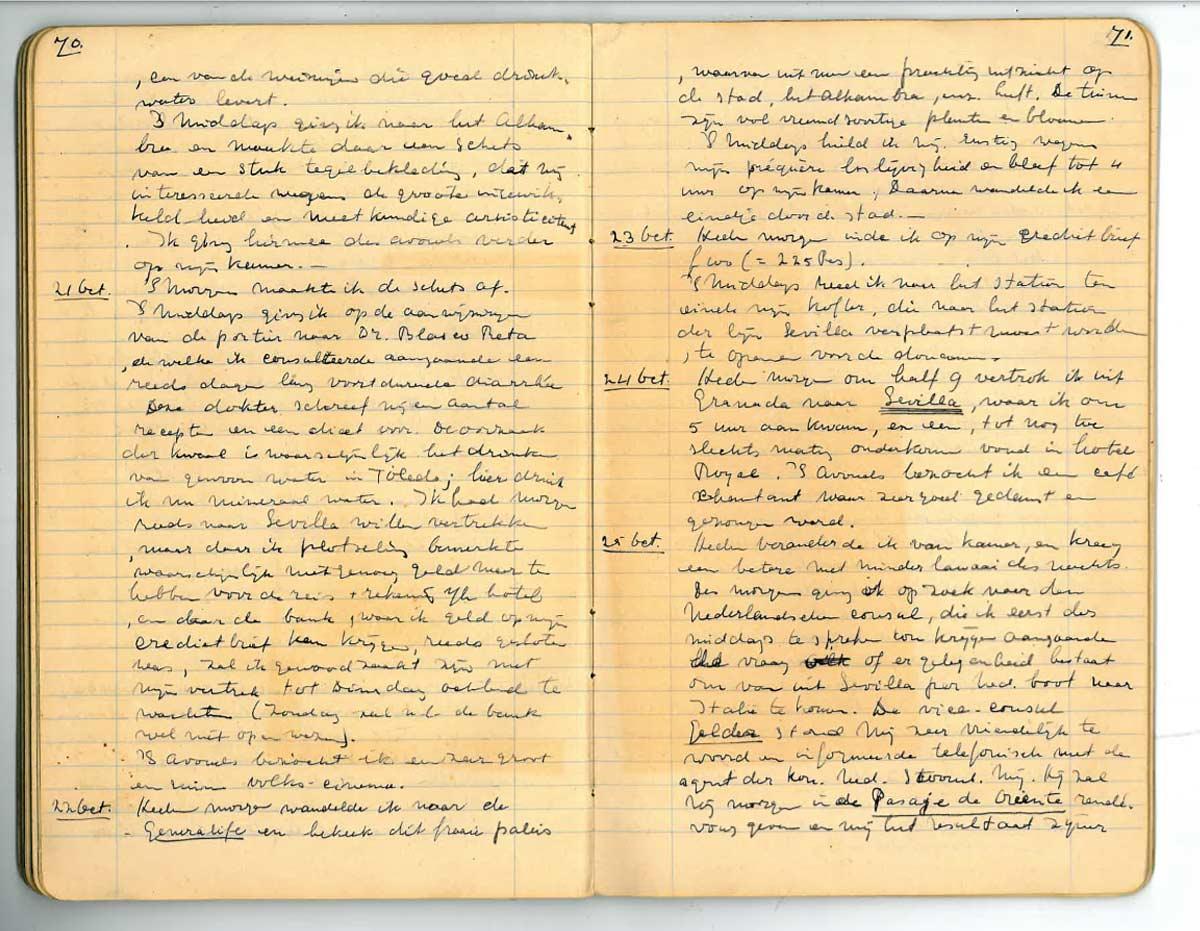 70.
, een van de weinigen die goed drink-
water levert.
'S Middags ging ik naar het Alham-
bra en maakte daar een schets
van een stuk tegelbekleding, dat mij
interesseerde wegens de groote ingewik-
keldheid en meetkundige artisticiteit
. Ik ging hiermee des avonds verder
op mijn kamer. —
21 Oct. 'S Morgens maakte ik de schets af.
'S Middags ging ik op de aanwijzingen
van de portier naar Dr. Blasco Reta
, de welke ik consulteerde aangaande een
reeds dagen lang voortdurende diarrhée
Deze dokter schreef mij een aantal
recepten en een dieet voor. De oorzaak
der kwaal is waarschijnlijk het drinken
van gewoon water in Toledo; hier drink
ik nu mineraal water. Ik had morgen
reeds naar Sevilla willen vertrekken
, maar daar ik plotseling bemerkte
waarschijnlijk niet genoeg geld meer te
hebben voor de reis + rekening v/h hotel
, en daar de bank, waar ik geld op mijn
credietbrief kan krijgen, reeds gesloten
was, zal ik genoodzaakt zijn met
mijn vertrek tot Dinsdag ochtend te
wachten (Zondag zal n.l. de bank
wel niet open wezen).
'S Avonds bezocht ik een zeer groot
en ruim volks-cinema.
22 Oct. Heden morgen wandelde ik naar de
Generalife en bekeek dit fraaie paleis
71.
, waarvan uit men een prachtig uitzicht op
de stad, het Alhambra, enz. heeft. De tuinen
zijn vol vreemdsoortige planten en bloemen.
'S Middags hield ik mij rustig wegens
mijn précaire loslijvigheid en bleef tot 4
uur op mijn kamer. Daarna wandelde ik een
eindje door de stad. —
23 Oct. Heden morgen inde ik op mijn crediet brief
f 100 (= 225 Pes).
'S Middags reed ik naar het station ten
einde mijn koffer, die naar het station
der lijn Sevilla verplaatst moest worden
, te openen voor de douanen.
24 Oct. Heden morgen om half 9 vertrok ik uit
Granada naar Sevilla, waar ik om
5 uur aankwam, en een, tot nog toe
slechts matig onderkomen vond in hotel
Royal. 'S Avonds bezocht ik een café
chantant waar zeer goed gedanst en
gezongen werd.
25 Oct. Heden veranderde ik van kamer, en kreeg
een betere met minder lawaai des nachts.
Des morgens ging ik op zoek naar den
Nederlandschen consul, die ik eerst des
middags te spreken kon krijgen aangaande
de vraag of er gelegenheid bestaat
om van uit Sevilla per Ned. boot naar
Italie te komen. De vice-consul
Gelder stond mij zeer vriendelijk te
woord en informeerde telefonisch met de
agent der Kon. Ned. Stoomb. Mij. Hij zal
mij morgen in de Pasaje de Oriente rendé-
vous geven en mij het resultaat zijner